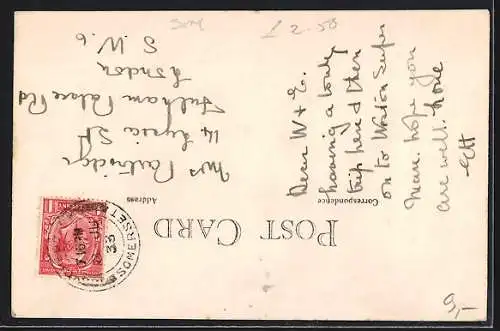 POST CARD
Correspondence
Address
Dear W & E.
having a lovely
trip here & then
on to Weston Super
Mare. hope you
are well. Love
EH
Mrs Partridge
14 Lyrica St
Fulham Palace Rd
London
S.W. 6
SOMERSET
33
£ 2.50
9,-